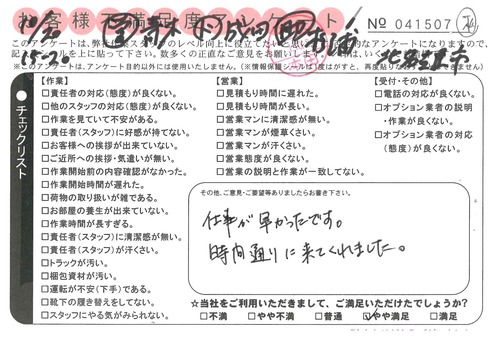 お客様満足度アンケート
№ 041507
このアンケートは、弊社作業スタッフのレベル向上に役立てたいと思い
15:20
※このアンケートは、アンケート目的以外には使用いたしません。
チェックリスト
【作業】
□責任者の対応(態度)が良くない。
□他のスタッフの対応(態度)が良くない。
□作業を見ていて不安がある。
□責任者(スタッフ)に好感が持てない。
□お客様への挨拶が出来ていない。
□ご近所への挨拶・気遣いが無い。
□作業開始前の内容確認がなかった。
□作業開始時間が遅れた。
□荷物の取り扱いが雑である。
□お部屋の養生が出来ていない。
□作業時間が長すぎる。
□責任者(スタッフ)に清潔感が無い。
□責任者(スタッフ)が汗くさい。
□トラックが汚い。
□梱包資材が汚い。
□運転が不安(下手)である。
□靴下の履き替えをしてない。
□スタッフにやる気がみられない。
【営業】
□見積もり時間に遅れた。
□見積もり時間が長い。
□営業マンに清潔感が無い。
□営業マンが煙草くさい。
□営業マンが汗くさい。
□営業態度が良くない。
□営業の説明と作業が一致してない。
【受付・その他】
□電話の対応が良くない。
□オプション業者の説明
・作業が良くない。
□オプション業者の対応
(態度)が良くない。
その他、ご意見・ご要望等ありましたらお書き下さい。
仕事が早かったです。
時間通りに来てくれました。
☆当社をご利用いただきまして、ご満足いただけたでしょうか?
□不満 □やや不満 □普通 ☑やや満足 □満足